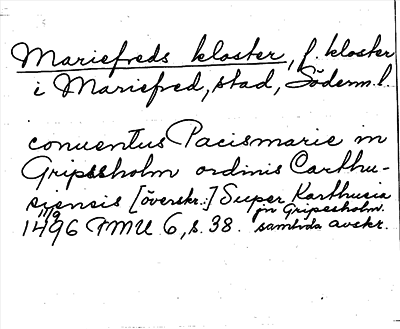 Mariefreds kloster, f. kloster
i Mariefred, stad, Söderm. l.
conuentus Pacismarie in
Gripssholm ordinis Carthu-
siensis [överskr.:] Super Karthusia
in Gripesholm.
11/9
1496 FMU 6, s. 38. samtida avskr.